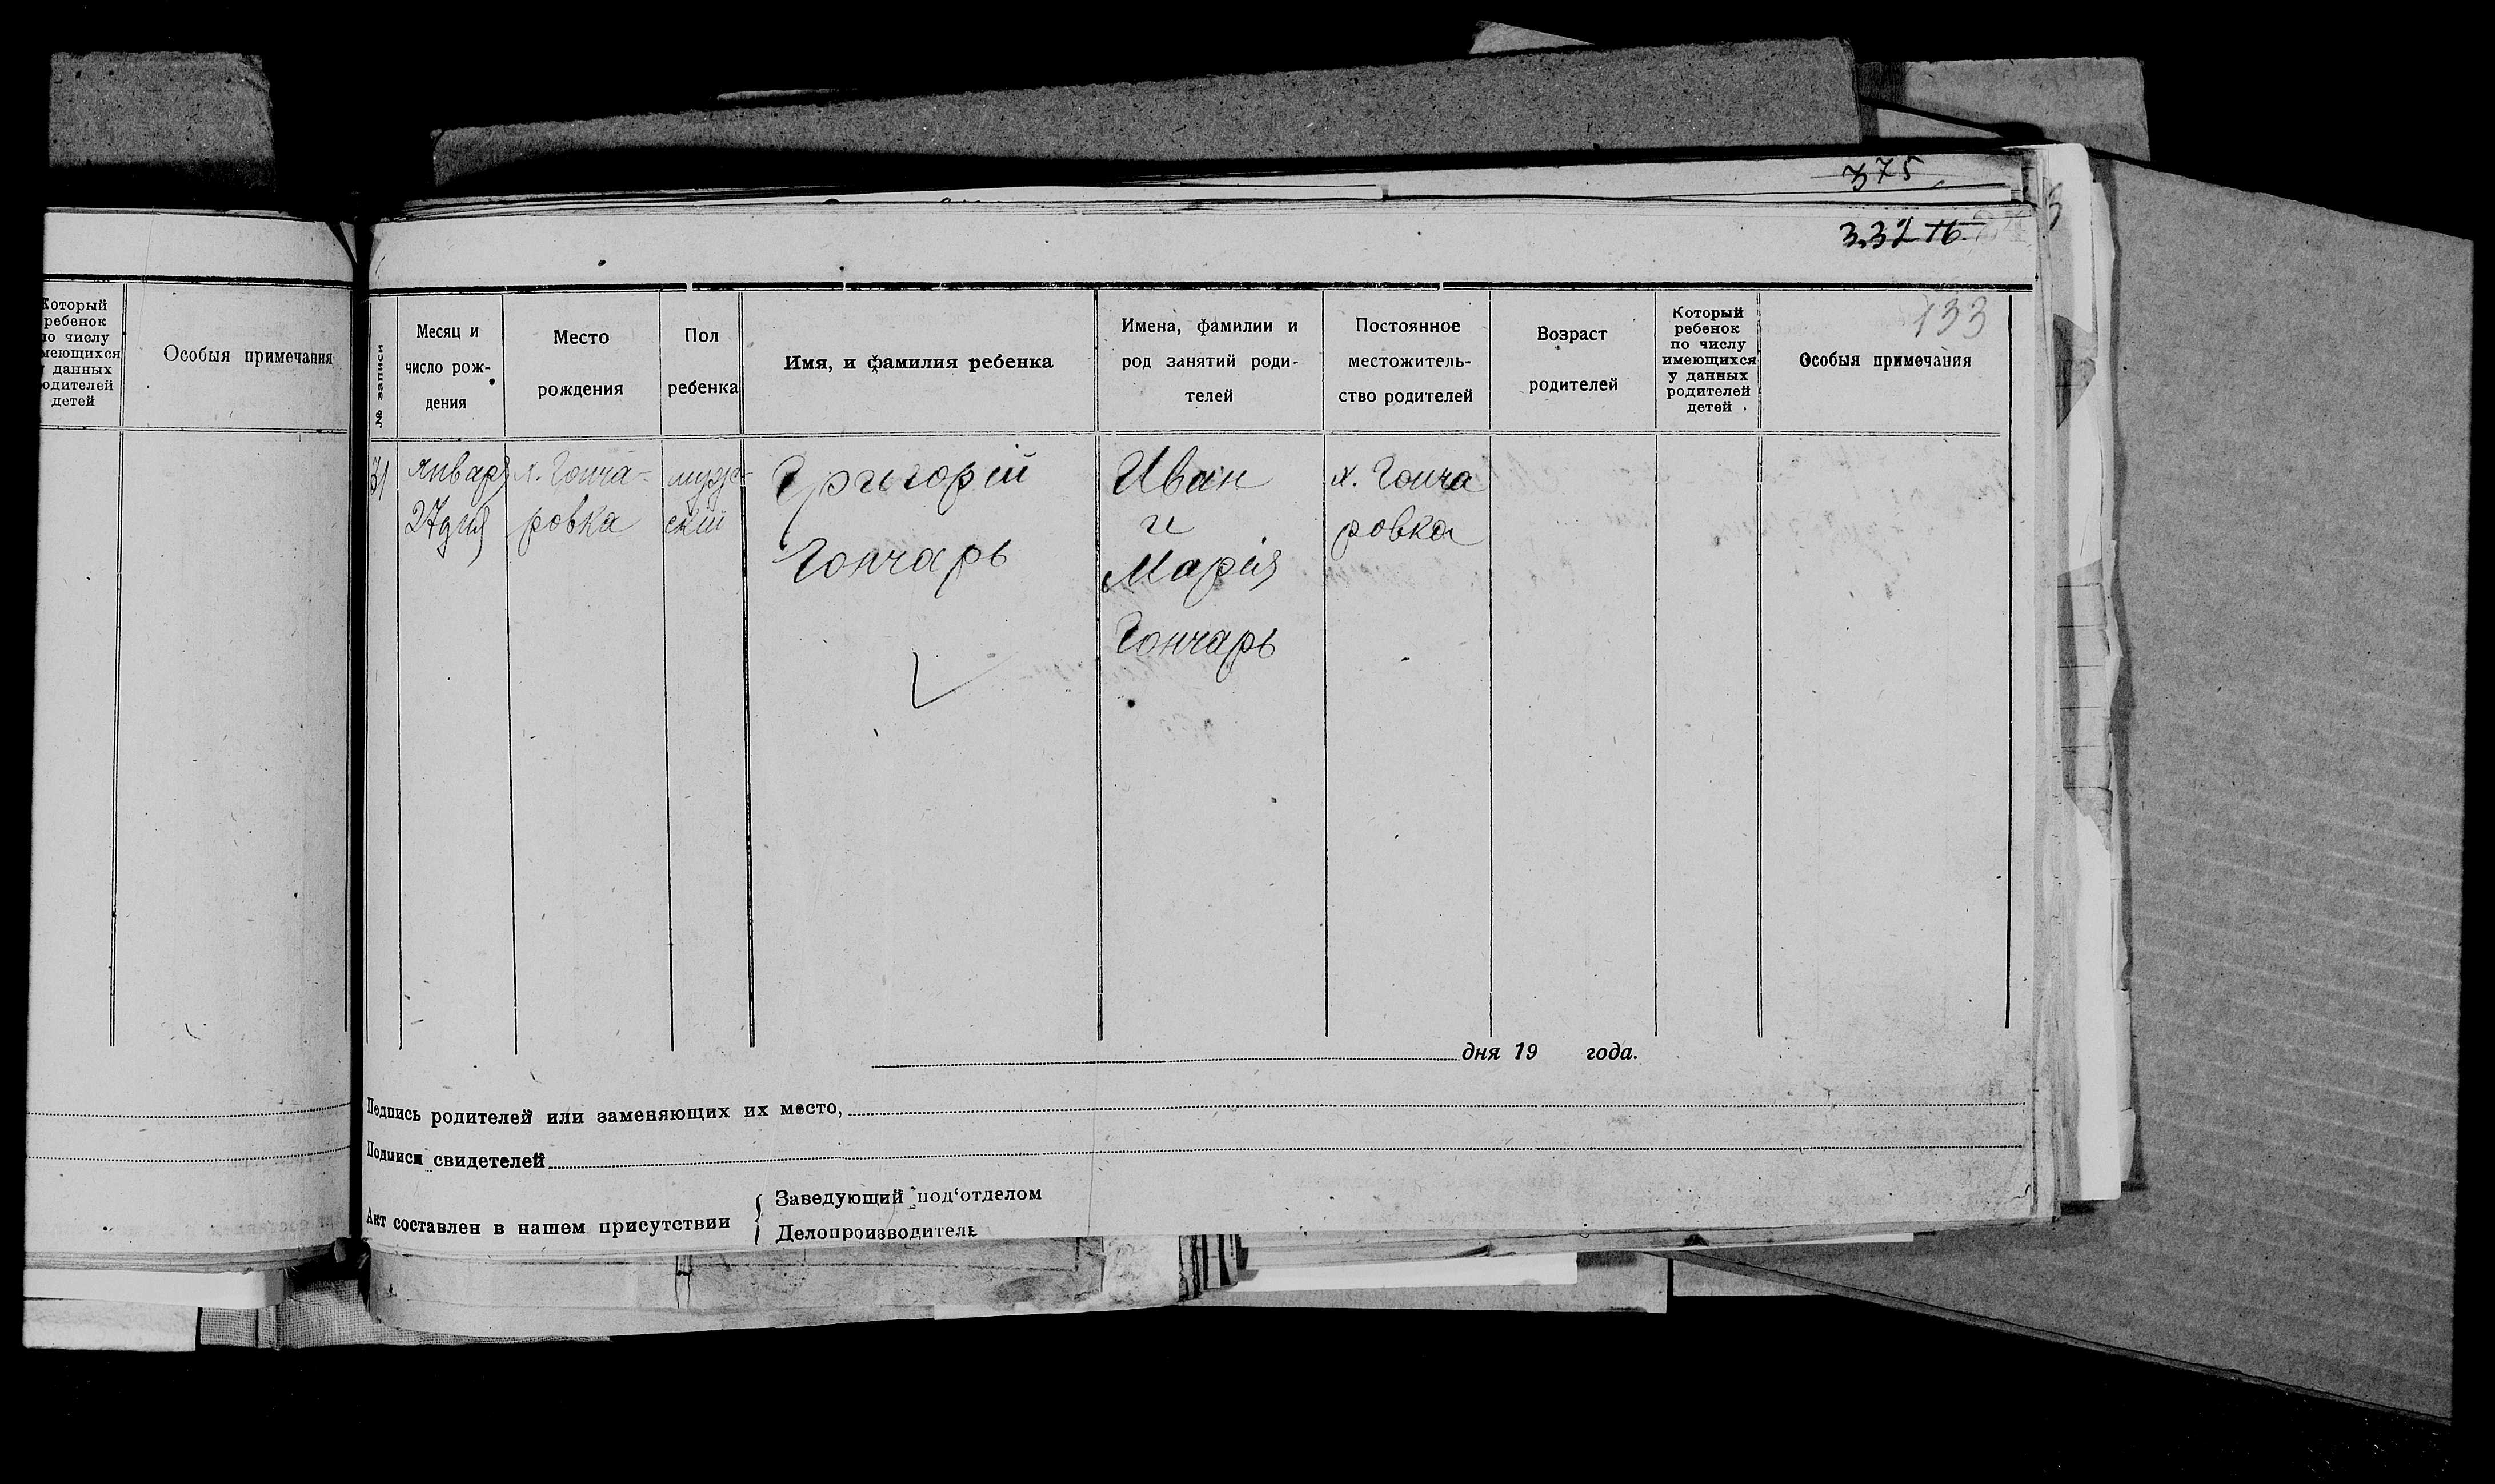 375
332
133
Который
ребенок
по числу
имеющихся
у данных
родителей
детей
Особыя примечания
№ записи
Месяц и
число рож-
дения
Место
рождения
Пол
ребенка
Имя, и фамилия ребенка
Имена, фамилии и
род занятий роди-
телей
Постоянное
местожитель-
ство родителей
Возраст
родителей
Который
ребенок
по числу
имеющихся
у данных
родителей
детей
Особыя примечания
31
января
27 дня
х. Гонча-
ровка
мужс-
кій
Григорій
Гончарь
Иван
и
Марія
Гончарь
х. Гонча
ровка
дня 19 года.
Подпись родителей или заменяющих их место,
Подписи свидетелей
Акт составлен в нашем присутствии
Заведующий под‘отделом
Делопроизводитель